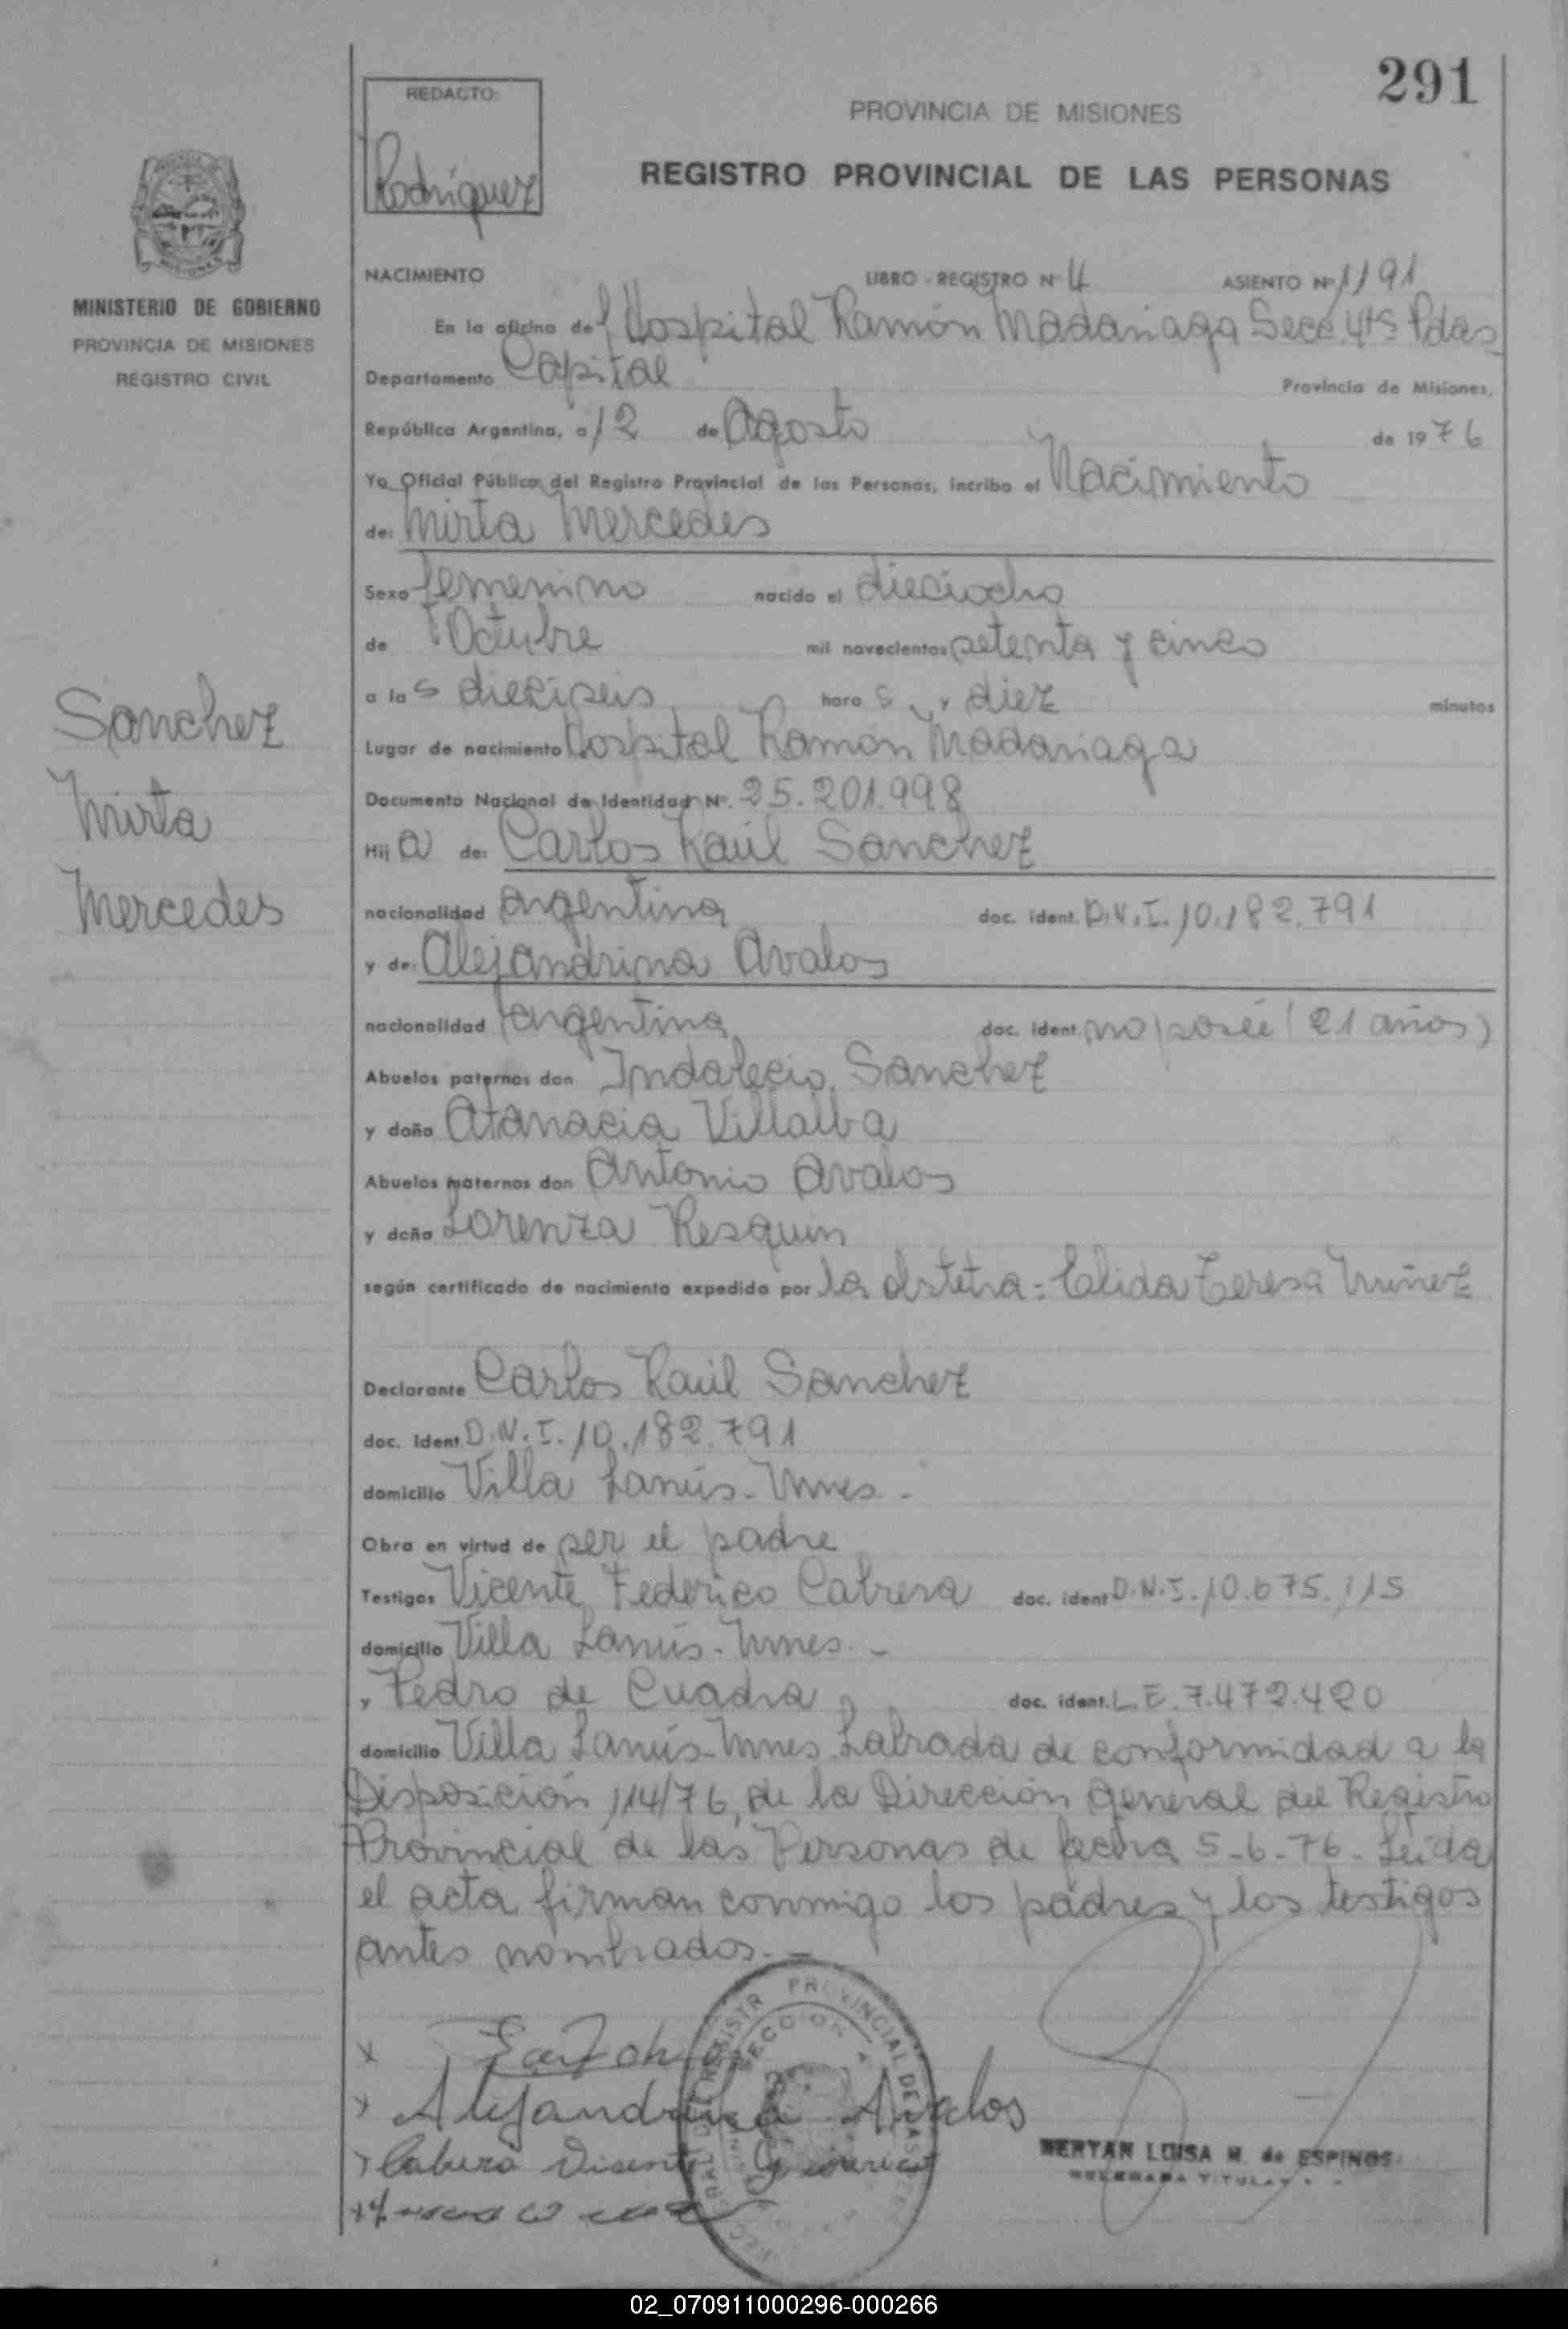 291
REDACTO:
Rodríguez
PROVINCIA DE MISIONES
REGISTRO PROVINCIAL DE LAS PERSONAS
MINISTERIO DE GOBIERNO
PROVINCIA DE MISIONES
REGISTRO CIVIL
NACIMIENTO LIBRO - REGISTRO Nº 4 ASIENTO Nº 1191
En la oficina del Hospital Ramón Madariaga Secc. 4ta Pdas
Departamento Capital Provincia de Misiones,
República Argentina, a 12 de Agosto de 1976
Yo Oficial Público del Registro Provincial de las Personas, incribo el Nacimiento
de: Mirta Mercedes
Sexo femenino nacido el dieciocho
de Octubre mil novecientos setenta y cinco
a las dieciseis horas y diez minutos
Lugar de nacimiento Hospital Ramón Madariaga
Documento Nacional de Identidad Nº. 25.201.998
Hija de: Carlos Raúl Sanchez
nacionalidad argentina doc. ident. D.N.I. 10.182.791
y de: Alejandrina Avalos
nacionalidad argentina doc. ident. no poseé (21 años)
Abuelos paternos don Indalecio Sanchez
y doña Atanacia Villalba
Abuelos maternos don Antonio Avalos
y doña Lorenza Resquin
según certificado de nacimiento expedido por la obstetra: Elida Teresa Nuñez
Sanchez
Mirta
Mercedes
Declarante Carlos Raúl Sanchez
doc. ident. D.N.I. 10.182.791
domicilio Villa Lanús - Mnes. -
Obra en virtud de ser el padre
Testigos Vicente Federico Cabrera doc. ident D.N.I. 10.675.115
domicilio Villa Lanús - Mnes. -
y Pedro de Cuadra doc. ident. L.E. 7.472.420
domicilio Villa Lanús - Mnes. Labrada de conformidad a la
Disposición 114/76, de la Dirección General del Registro
Provincial de las Personas de fecha 5-6-76. Leída
el acta firman conmigo los padres y los testigos
antes nombrados. -
PROVINCIAL DE LAS
SECCION
x
x Alejandrina Avalos
x Cabrera
x
BERTAN LUISA M. de ESPINOS
DELEGADA TITULAR
02_070911000296-000266